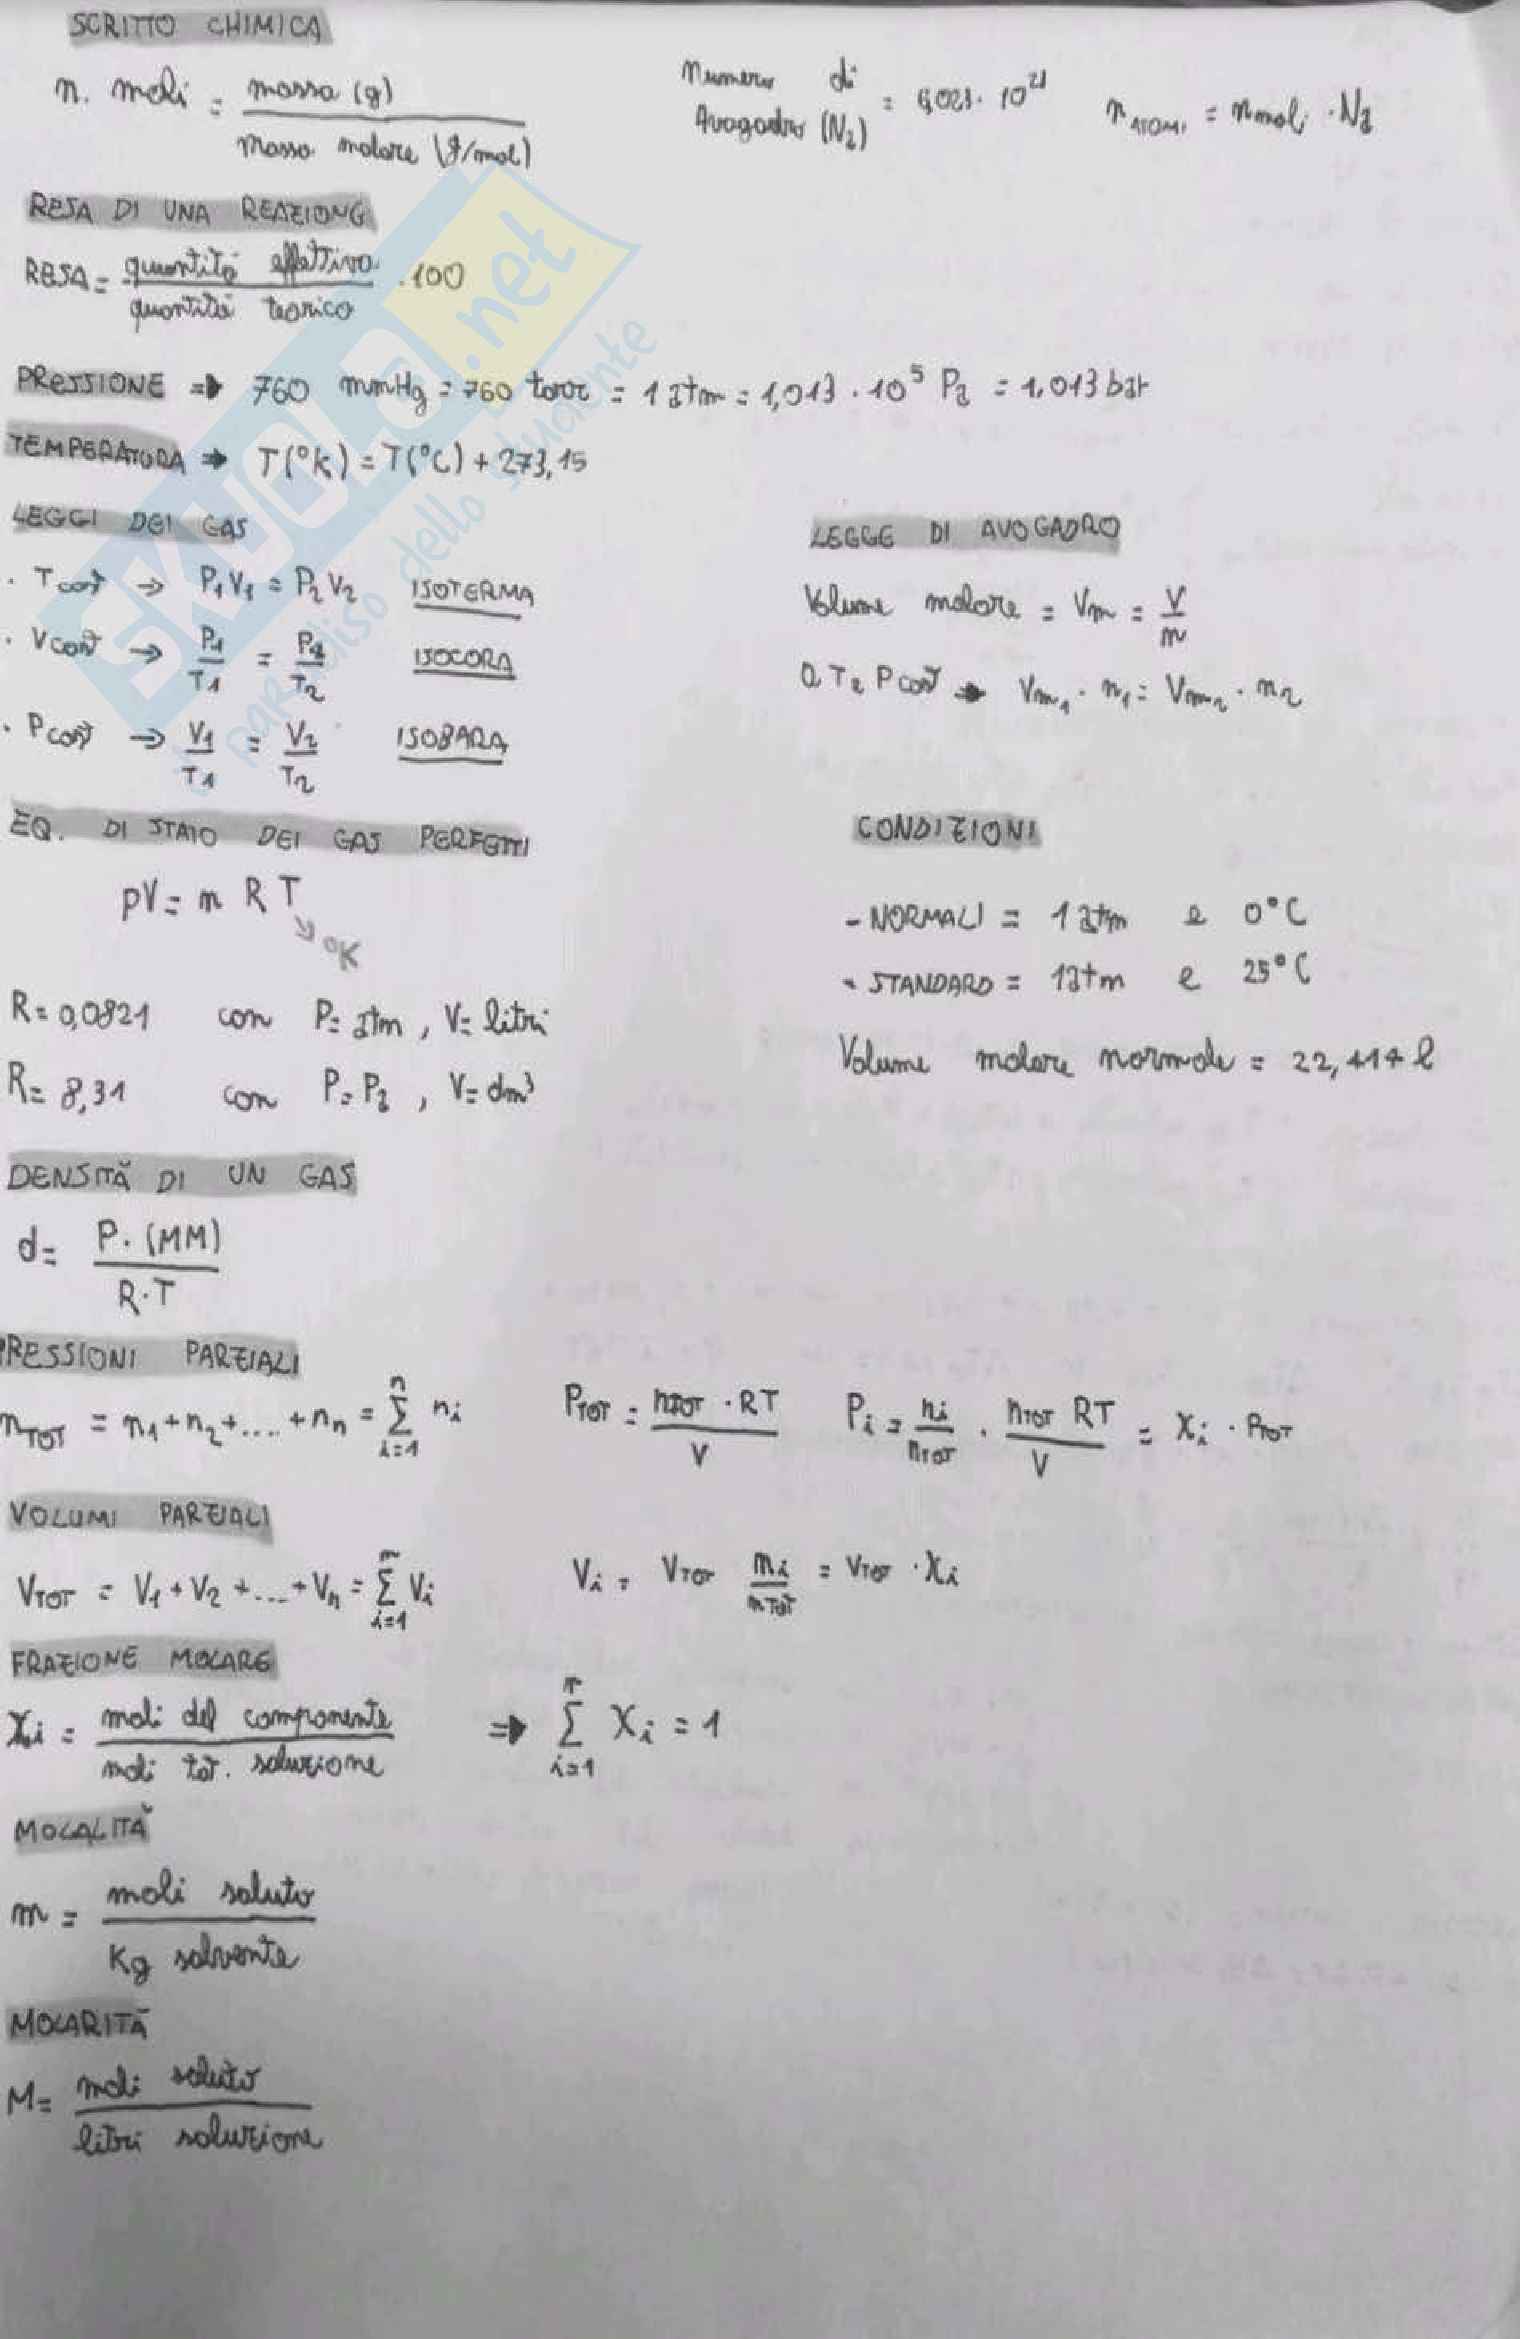 SCRITTO CHIMICA
n. moli = massa (g) / massa molare (g/mol)
Numero di Avogadro (Na) = 6,021 · 10^21
n ATOMI = n moli · Na
RESA DI UNA REAZIONE
RESA = quantità effettiva / quantità teorica · 100
PRESSIONE ⇒ 760 mmHg = 760 torr = 1 atm = 1,013 · 10^5 Pa = 1,013 bar
TEMPERATURA ⇒ T(°K) = T(°C) + 273,15
LEGGI DEI GAS
· T cost → P1V1 = P2V2 ISOTERMA
· V cost → P1/T1 = P2/T2 ISOCORA
· P cost → V1/T1 = V2/T2 ISOBARA
LEGGE DI AVOGADRO
Volume molare = Vm = V/n
a T e P cost ⇒ Vm1 · n1 = Vm2 · n2
EQ. DI STATO DEI GAS PERFETTI
pV = n R T
°K
R = 0,0821 con P = atm, V = litri
R = 8,31 con P = Pa, V = dm³
CONDIZIONI
- NORMALI = 1 atm e 0°C
- STANDARD = 1 atm e 25°C
Volume molare normale = 22,414 l
DENSITÀ DI UN GAS
d = P · (MM) / R · T
PRESSIONI PARZIALI
nTOT = n1 + n2 + .... + nn = Σ(i=1→n) ni
PTOT = nTOT · RT / V
Pi = ni/nTOT · nTOT RT / V = Xi · PTOT
VOLUMI PARZIALI
VTOT = V1 + V2 + .... + Vn = Σ(i=1→n) Vi
Vi = VTOT ni/nTOT = VTOT · Xi
FRAZIONE MOLARE
Xi = moli del componente / moli tot. soluzione ⇒ Σ(i=1→n) Xi = 1
MOLALITÀ
m = moli soluto / Kg solvente
MOLARITÀ
M = moli soluto / litri soluzione
SKUOLA.net
il paradiso dello studente